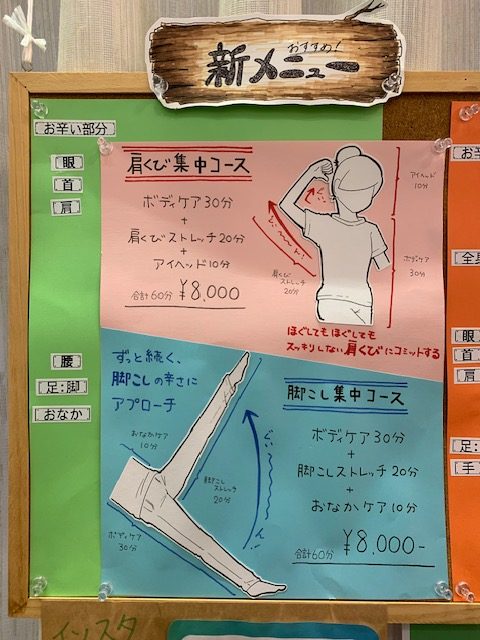 おすすめ!
新メニュー
お辛い部分
眼
首
肩
肩くび集中コース
ボディケア30分
+
肩くびストレッチ20分
+
アイヘッド10分
合計60分 ¥8,000
アイヘッド
10分
ボディケア
30分
肩くび
ストレッチ
20分
ぐぃ〜〜ん!
ほぐしてもほぐしても
スッキリしない肩くびにコミットする
腰
足:脚
おなか
ずっと続く、
脚こしの辛さに
アプローチ
おなかケア
10分
脚こし
ストレッチ
20分
ボディケア
30分
脚こし集中コース
ボディケア30分
+
脚こしストレッチ20分
+
おなかケア10分
合計60分 ¥8,000-
お辛
全身
眼
首
肩
足:
手
インスタ